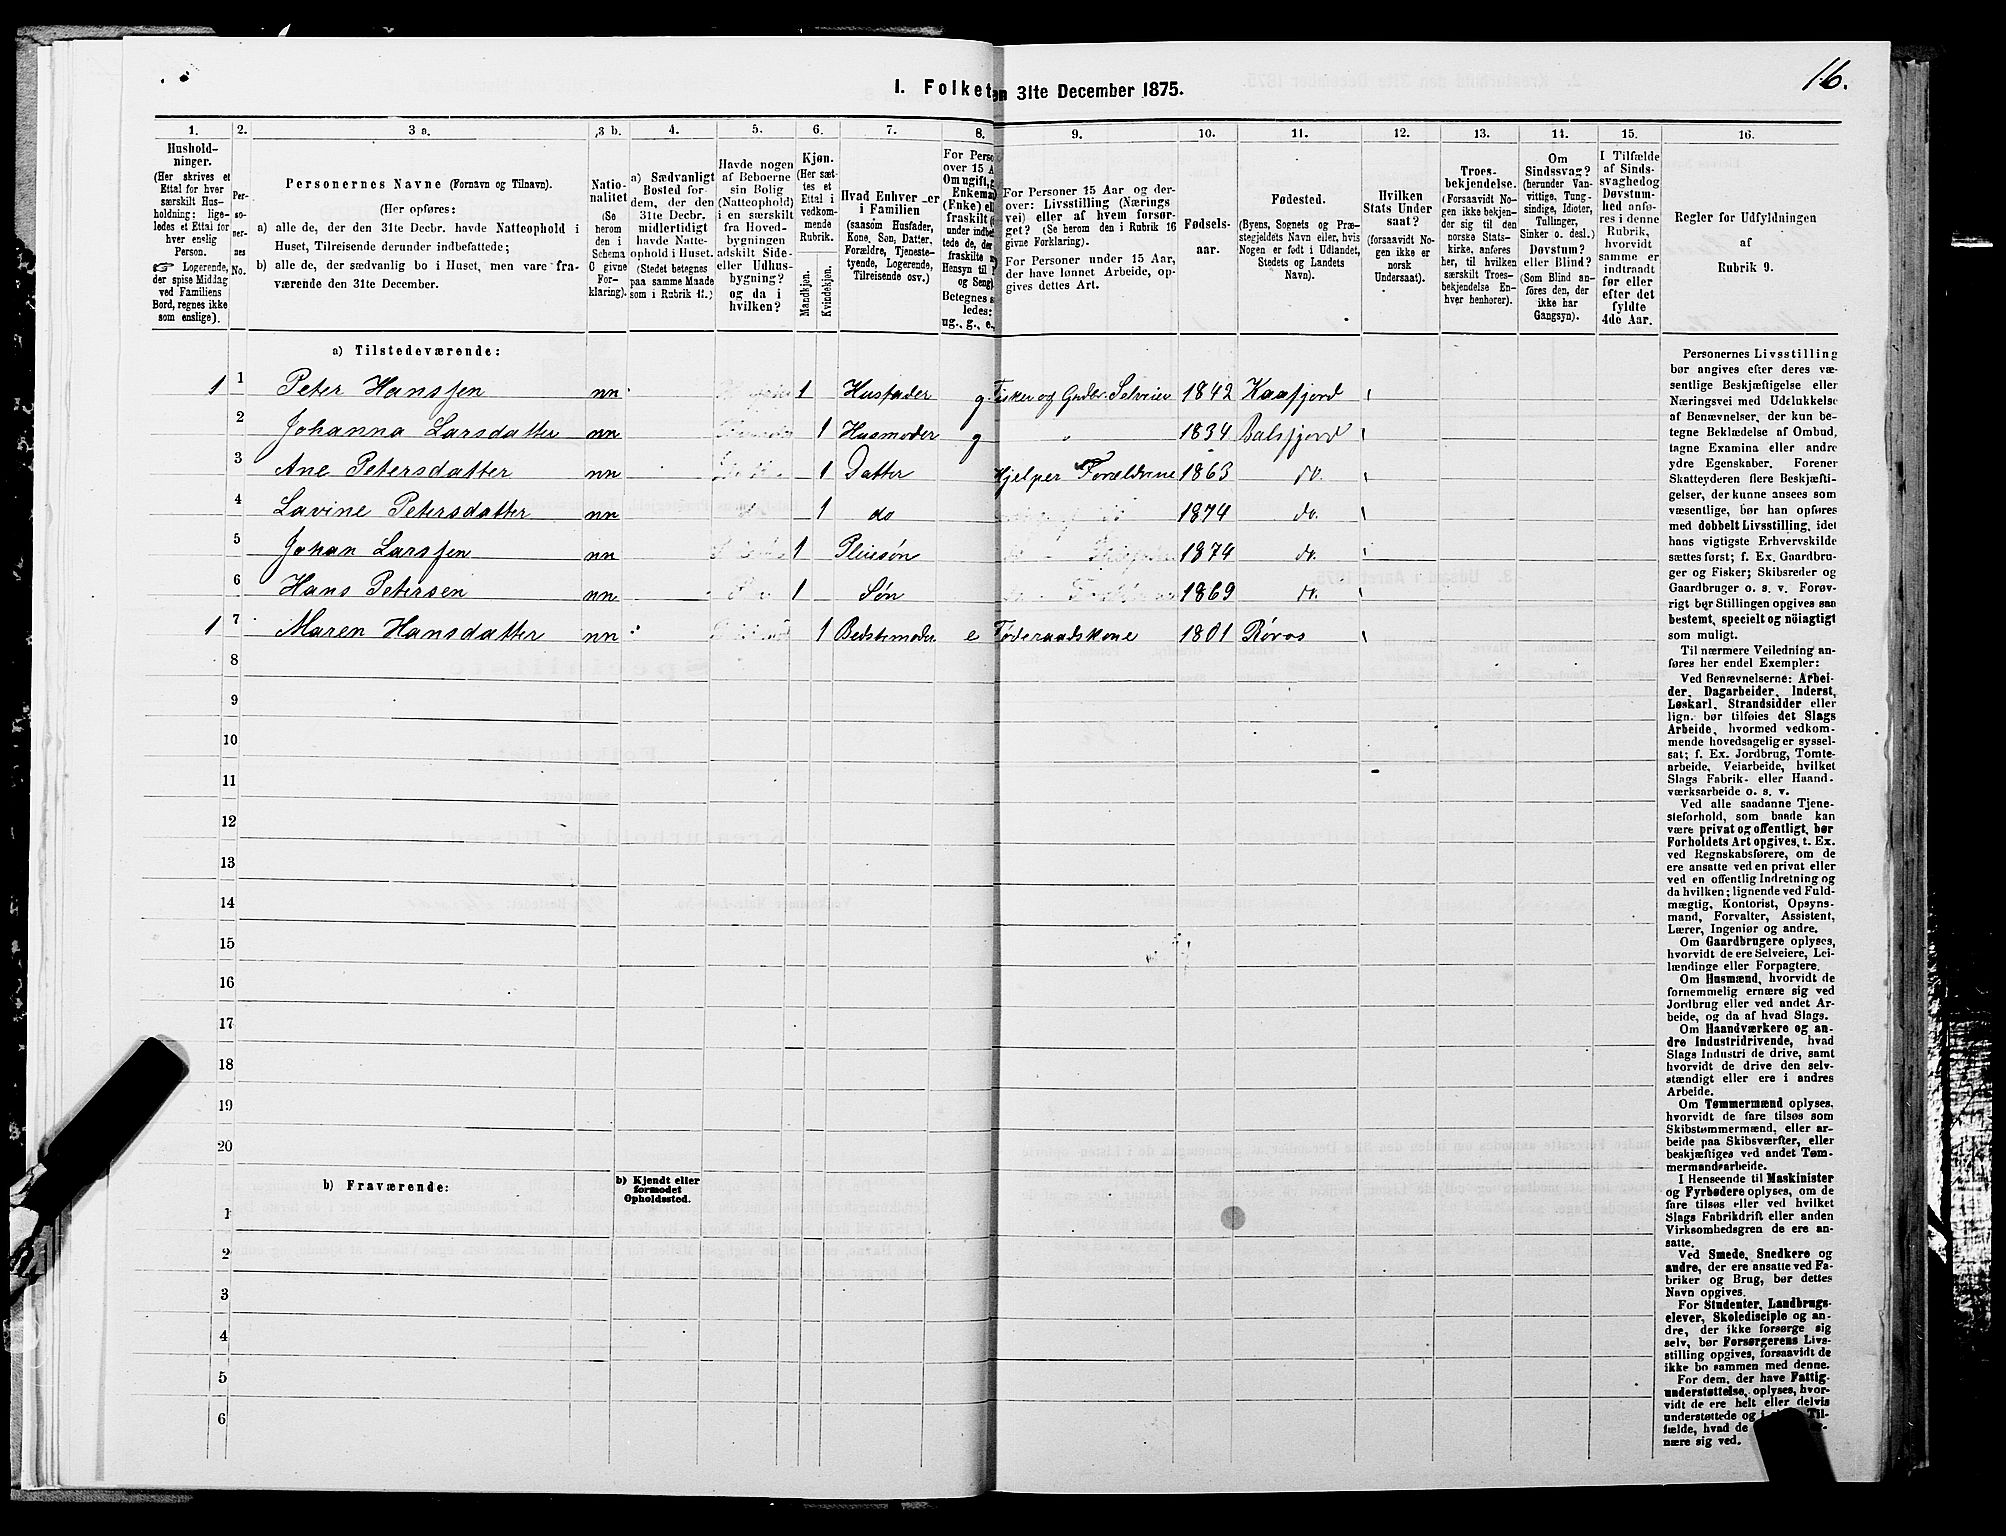 16.
I. Folket
en 31te December 1875.
1. 2. 3 a. 3 b. 4. 5. 6. 7. 8. 9. 10. 11. 12. 13. 14. 15. 16.
Hushold-
ninger.
(Her skrives et
Ettal for hver
særskilt Hus-
holdning; lige-
ledes et Ettal for
hver enslig
Person.
☞ Logerende,
der spise Middag
ved Familiens
Bord, regnes ikke
som enslige).
Per-
so-
ner-
nes
No.
Personernes Navne (Fornavn og Tilnavn).
(Her opføres:
a) alle de, der den 31te Decbr. havde Natteophold i
Huset, Tilreisende derunder indbefattede;
b) alle de, der sædvanlig bo i Huset, men vare fra-
værende den 31te December.
Natio-
nalitet
(Se
herom
den i
Schema
6 givne
For-
klaring).
a) Sædvanligt
Bosted for-
dem, der den
31te Decbr.
midlertidigt
havde Natte-
ophold i Huset.
(Stedet betegnes
paa samme Maade
som i Rubrik 11.)
Havde nogen
af Beboerne
sin Bolig
(Natteophold)
i en særskilt
fra Hoved-
bygningen
adskilt Side-
eller Udhus-
bygning?
og da i
hvilken?
Kjøn.
(Her sæt-
tes et
Ettal i
vedkom-
mende
Rubrik.
Mandkjøn.
Kvindekjøn.
Hvad Enhver er
i Familien
(saasom Husfader,
Kone, Søn, Datter,
Forældre, Tjeneste-
tyende, Logerende,
Tilreisende osv.)
For Perso
over 15 A
Om ugift, g
Enkema
(Enke) el
fraskilt
under indbe
tede de, der
fraskilte
Hensyn til
og Seng).
Betegnes s
ledes:
ug., g., e.,
For Personer 15 Aar og der-
over: Livsstilling (Nærings
vei) eller af hvem forsør-
get? (Se herom den i Rubrik 16
givne Forklaring).
For Personer under 15 Aar,
der have lønnet Arbeide, op-
gives dettes Art.
Fødsels-
aar.
Fødested.
(Byens, Sognets og Præ-
stegjeldets Navn eller, hvis
Nogen er født i Udlandet,
Stedets og Landets
Navn).
Hvilken
Stats Under
saat?
(forsaavidt No-
gen ikke er
norsk
Undersaat).
Troes-
bekjendelse.
(Forsaavidt No-
gen ikke bekjen-
der sig til den
norske Stats-
kirke, anføres
her, til hvilken
særskilt Troes-
bekjendelse En-
hver henhører).
Om
Sindssvag?
(herunder Van-
vittige, Tung-
sindige, Idioter,
Tullinger,
Sinker o. desl.)
Døvstum?
eller Blind?
(Som Blind an-
føres den, der
ikke har
Gangsyn).
I Tilfælde
af Sinds-
svaghed og
Døvstum-
hed anfø-
res i denne
Rubrik,
hvorvidt
samme er
indtraadt
før eller
efter det
fyldte
4de Aar.
Regler for Udfyldningen
af
Rubrik 9.
a) Tilstedeværende:
1 1 Peter Hanssen nn 1 Husfader g Fisker og Gaardbr. Selveier 1842 Kaafjord
2 Johanna Larsdatter nn 1 Husmoder g " 1834 Balsfjord
3 Ane Petersdatter nn 1 Datter Hjelper Forældrene 1863 do.
4 Lavine Petersdatter nn 1 do 1874 do.
5 Johan Larssen nn 1 Pleiesøn 1874 do.
6 Hans Petersen nn 1 Søn 1869 do.
1 7 Maren Hansdatter nn 1 Bedstemoder e Føderaadskone 1801 Røros
8
9
10
11
12
13
14
15
16
17
18
19
20
b) Fraværende:
b) Kjendt eller
formodet
Opholdssted.
1
2
3
4
5
6
Personernes Livsstilling
bør angives efter deres væ-
sentlige Beskjæftigelse eller
Næringsvei med Udelukkelse
af Benævnelser, der kun be-
tegne Beklædelse af Ombud,
tagne Examina eller andre
ydre Egenskaber. Forener
Skatteyderen flere Beskjæfti-
gelser, der kunne ansees som
væsentlige, bør han opføres
med dobbelt Livsstilling, idet
hans vigtigste Erhvervskilde
sættes først; f. Ex. Gaardbru-
ger og Fisker; Skibsreder og
Gaardbruger o. s. v. Forøv-
rigt bør Stillingen opgives saa
bestemt, specielt og nöiagtigt
som muligt.
Til nærmere Veiledning an-
føres her endel Exempler:
Ved Benævnelserne: Arbei-
der, Dagarbeider, Inderst,
Løskarl, Strandsidder eller
lign. bør tilføies det Slags
Arbeide, hvormed vedkom-
mende hovedsagelig er syssel-
sat; f. Ex. Jordbrug, Tomte-
arbeide, Veiarbeide, hvilket
Slags Fabrik- eller Haand-
værksarbeide o. s. v.
Ved alle saadanne Tjene-
steforhold, som baade kan
være privat og offentligt, bør
Forholdets Art opgives, t. Ex.
ved Regnskabsførere, om de
ere ansatte ved en privat eller
ved en offentlig Indretning og
da hvilken; lignende ved Fuld-
mægtig, Kontorist, Opsyns-
mand, Forvalter, Assistent,
Lærer, Ingeniør og andre.
Om Gaardbrugere oplyses,
hvorvidt de ere Selveiere, Lei-
lændinge eller Forpagtere.
Om Husmænd, hvorvidt de
fornemmelig ernære sig ved
Jordbrug eller ved andet Ar-
beide, og da af hvad Slags.
Om Haandværkere og an-
dre Industridrivende, hvad
Slags Industri de drive, samt
hvorvidt de drive den selv-
stændigt eller ere i andres
Arbeide.
Om Tømmermænd oplyses,
hvorvidt de fare tilsøs som
Skibstømmermænd, eller ar-
beide paa Skibsværfter, eller
beskjæftiges ved andet Tøm-
mermandsarbeide.
I Henseende til Maskinister
og Fyrbødere oplyses, om de
fare tilsøs eller ved hvilket
Slags Fabrikdrift eller anden
Virksomhedsgren de ere an-
satte.
Ved Smede, Snedkere og
andre, der ere ansatte ved Fa-
briker og Brug, bør dettes
Navn opgives.
For Studenter, Landbrugs-
elever, Skoledisciple og an-
dre, der ikke forsørge sig
selv, bør Forsørgerens Livs-
stilling opgives, forsaavidt de
ikke bo sammen med denne.
For dem, der have Fattig-
understøttelse, oplyses, hvor-
vidt de ere helt eller delvis
understøttede og i Til-
fælde, hvad de
nære sig ved.